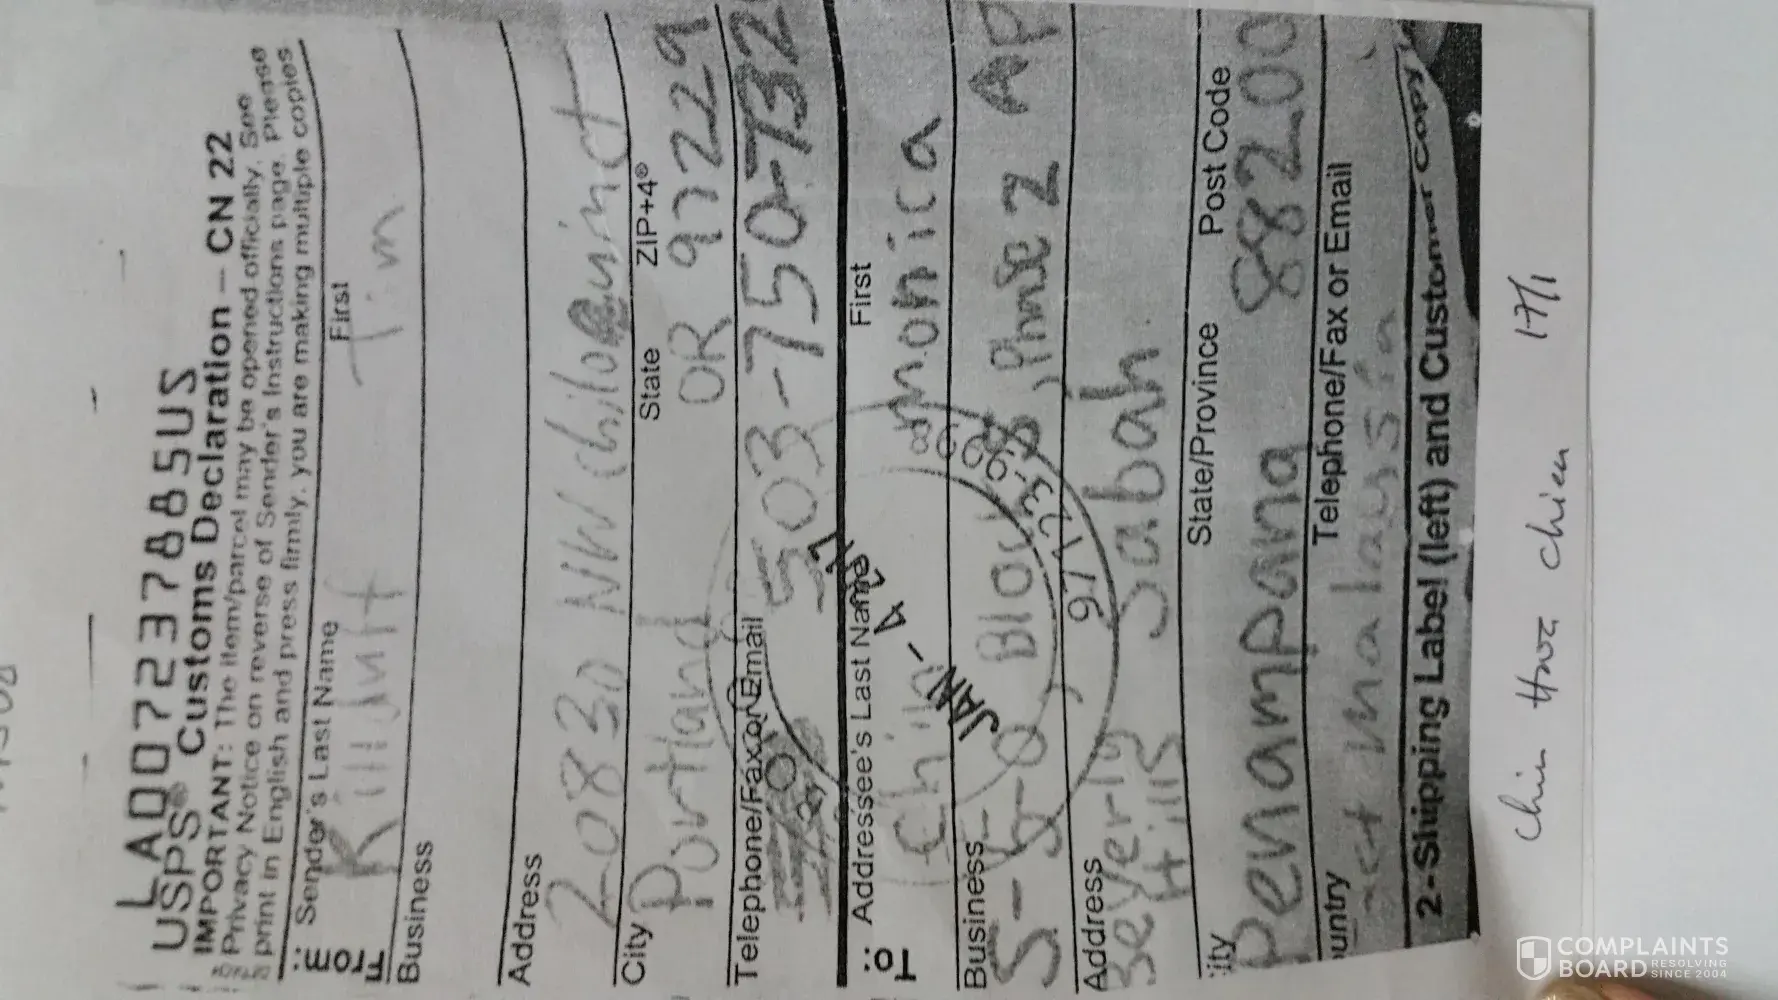 LA007237885US
USPS® Customs Declaration – CN 22
IMPORTANT: The item/parcel may be opened officially. See
Privacy Notice on reverse of Sender's Instructions page. Please
print in English and press firmly, you are making multiple copies
From: Sender's Last Name First
Tim
Business
Address
20830 NW Chiloquin ct
City State ZIP+4®
Portland OR 97229
Telephone/Fax or Email
503-750-732
To: Addressee's Last Name First
Chin monica
Business
5-5-0 Block 8, Phase 2 AP
Address
Beverly Hills Sabah
ity State/Province Post Code
Penampang 88200
ountry Telephone/Fax or Email
malaysia
2-Shipping Label (left) and Customer Copy
JAN-4 2017
97123-9998
17/1
COMPLAINTS
BOARD RESOLVING
SINCE 2004